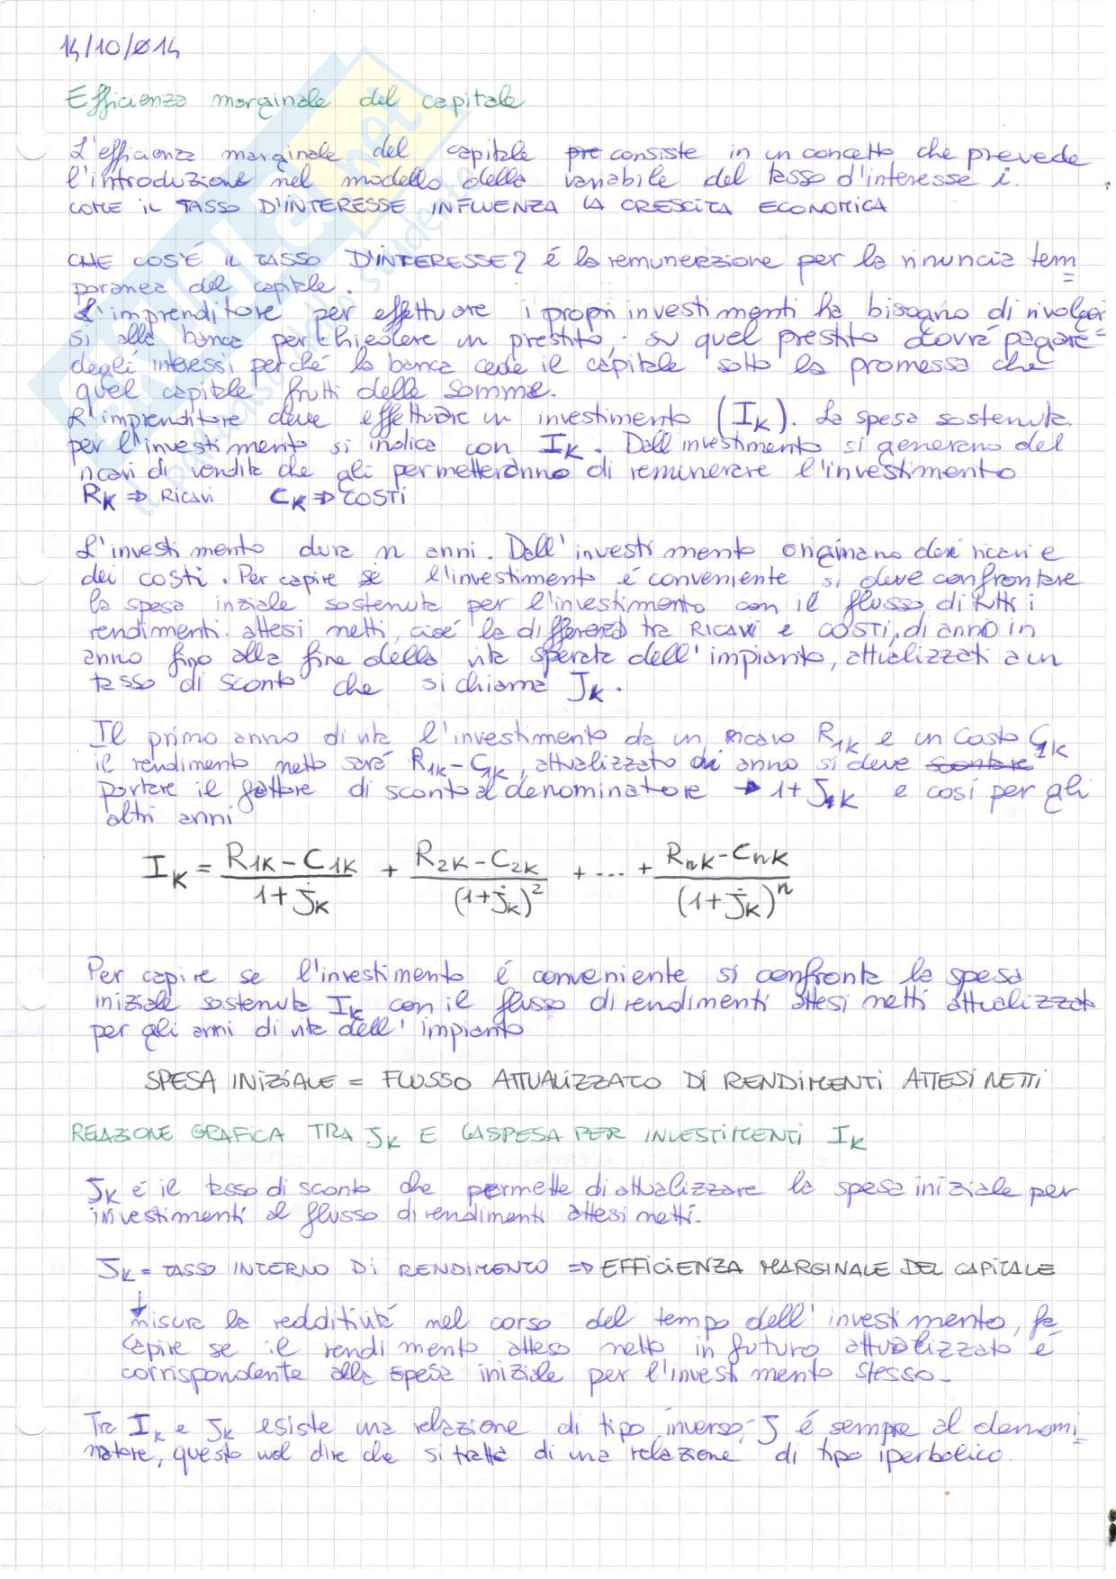 14/10/014
Efficienza marginale del capitale
L'efficienza marginale del capitale pre consiste in un concetto che prevede
l'introduzione nel modello della variabile del tasso d'interesse i.
COME IL TASSO D'INTERESSE INFLUENZA LA CRESCITA ECONOMICA
CHE COS'É IL TASSO D'INTERESSE? é la remunerazione per la rinuncia tem=
poranea del capitale.
L'imprenditore per effettuare i propri investimenti ha bisogno di rivolger
si alla banca per chiedere un prestito, su quel prestito dovrá pagare
degli interessi perché la banca cede il capitale sotto la promessa che
quel capitale frutti delle somme.
L'imprenditore deve effettuare un investimento (IK). La spesa sostenuta
per l'investimento si indica con IK. Dall'investimento si generano dei
ricavi di vendita che gli permetteranno di remunerare l'investimento
RK ⇒ RICAVI CK ⇒ COSTI
L'investimento dura n anni. Dall'investimento originano dei ricavi e
dei costi. Per capire se l'investimento é conveniente si deve confrontare
la spesa iniziale sostenuta per l'investimento con il flusso di tutti i
rendimenti attesi netti, cioé la differenza tra RICAVI e COSTI, di anno in
anno fino alla fine della vita sperata dell'impianto, attualizzati a un
tasso di sconto che si chiama JK.
Il primo anno di vita l'investimento da un ricavo R1K e un costo C1K
il rendimento netto sará R1K-C1K, attualizzato di anno si deve scontare
portare il fattore di sconto al denominatore → 1+J1K e cosí per gli
altri anni
IK = R1K-C1K / 1+jK + R2K-C2K / (1+jK)² + ... + RnK-CnK / (1+jK)ⁿ
Per capire se l'investimento é conveniente si confronta la spesa
iniziale sostenuta IK con il flusso di rendimenti attesi netti attualizzato
per gli anni di vita dell'impianto
SPESA INIZIALE = FLUSSO ATTUALIZZATO DI RENDIMENTI ATTESI NETTI
RELAZIONE GRAFICA TRA JK E LA SPESA PER INVESTIMENTI IK
JK é il tasso di sconto che permette di attualizzare la spesa iniziale per
investimenti al flusso di rendimenti attesi netti.
JK = TASSO INTERNO DI RENDIMENTO ⇒ EFFICIENZA MARGINALE DEL CAPITALE
↓
misura la redditivitá nel corso del tempo dell'investimento, fa
capire se il rendimento atteso netto in futuro attualizzato é
corrispondente alla spesa iniziale per l'investimento stesso.
Tra IK e JK esiste una relazione di tipo inverso, J é sempre al denomi=
natore, questo vuol dire che si tratta di una relazione di tipo iperbolico.